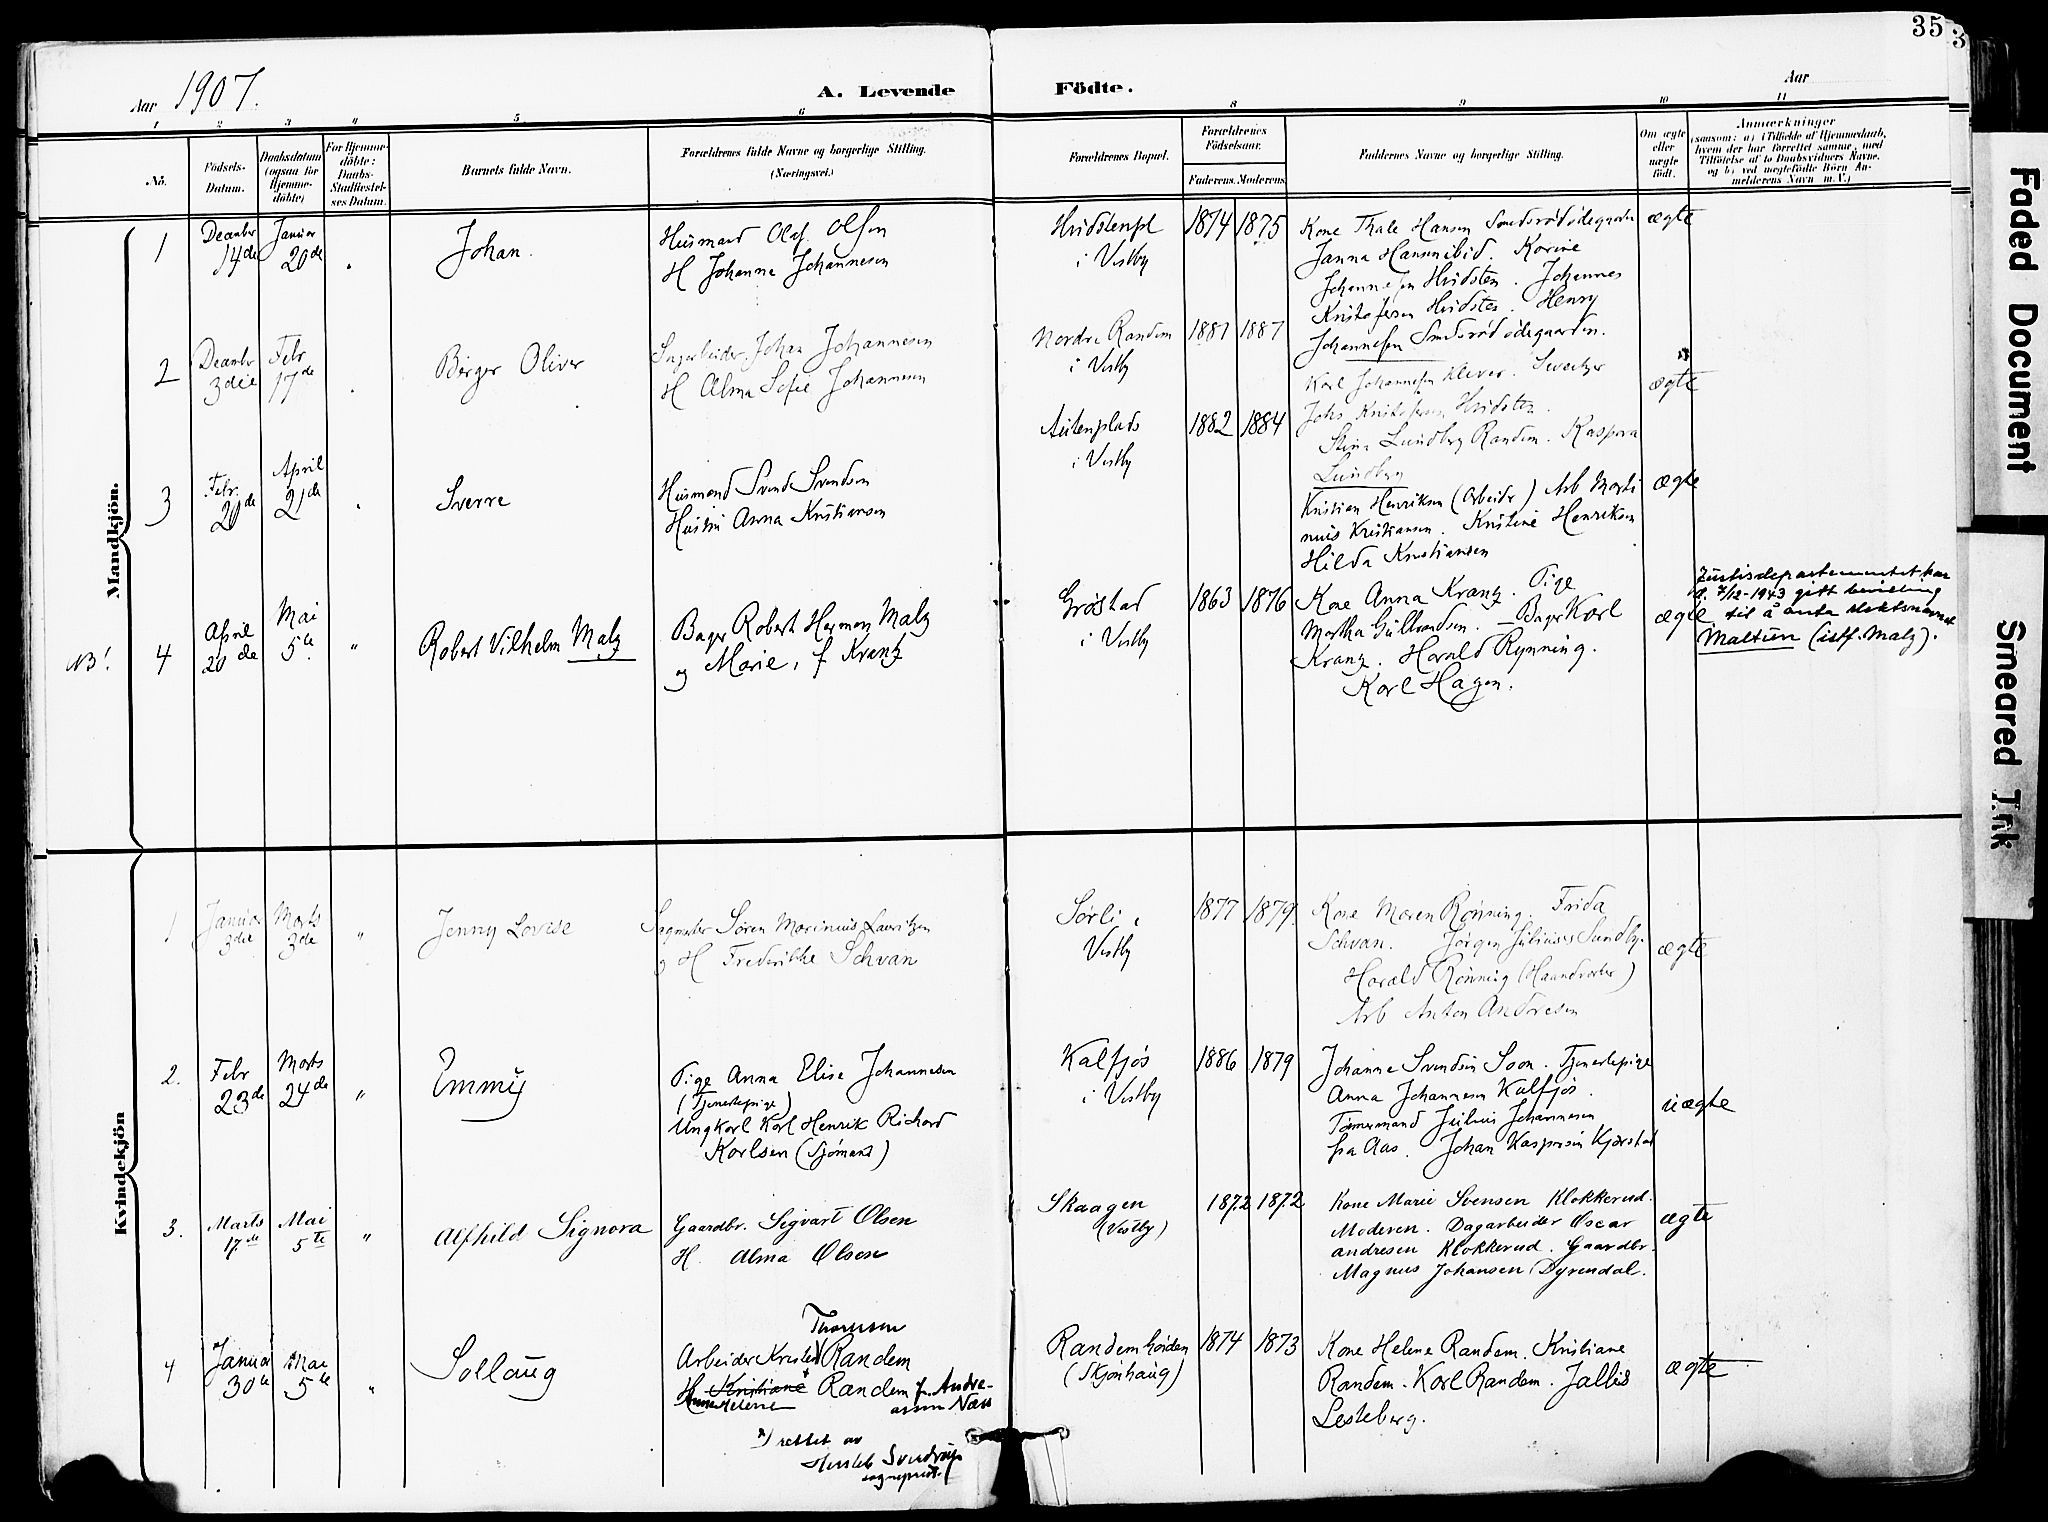 35
3
Aar 1907.
A. Levende Födte.
Aar
1 2 3 4 5 6 8 9 10 11
No.
Födsels-
Datum.
Daabsdatum
(ogsaa for
Hjemme-
döbte)
For Hjemme-
döbte:
Daabs-
Stadfæstel-
ses Datum.
Barnets fulde Navn.
Forældrenes fulde Navne og borgerlige Stilling.
(Næringsvei.)
Forældrenes Bopæl.
Forældrenes
Födselsaar.
Faderens. Moderens.
Faddernes Navne og borgerlige Stilling.
Om ægte
eller
uægte
födt.
Anmærkninger
(saasom: a) i Tilfælde af Hjemmedaab,
hvem der har forrettet samme, med
Tilföielse af to Daabsvidners Navne,
og b) ved uægtefödte Börn An-
melderens Navn m. V.)
Mandkjön.
1
December
14de
Januar
20de
Johan.
Husmand Olaf Olsen
H Johanna Johannesen
Hvidstenpl
i Vestby
1874 1875
Kone Thale Hansen Smedsrødødegaarden
Janna Hannibid. Korine
Johannesen Hvidsten. Johannes
Kristofersen Hvidsten. Henry
Johannesen Smedsrødødegaarden.
ægte
2
December
3die
Febr
17de
Birger Oliver
Sagarbeider Johan Johannesen
H Alma Sofie Johannesen
Nordre Randem
i Vestby
1881 1887
Karl Johannesen Klever. Sveitzer
Johs Kristofersen Hvidsten.
Stina Lundberg Randem. Kaspara
Lundberg
ægte
3
Febr.
20de
April
21de
Sverre
Husmand Svend Svendsen
Hustru Anna Kristiansen
Autenplads
i Vestby
1882 1884
Kristian Henriksen (Arbeider) Arb Marti
nius Kristiansen. Kristine Henriksen
Hilda Kristiansen
ægte
NB! 4
April
20de
Mai
5te
"
Robert Vilhelm Malz
Bager Robert Herman Malz
og Marie, f Kranz
Grøstad
i Vestby
1863 1876
Kone Anna Kranz. Pige
Martha Gulbrandsen. Bager Karl
Kranz. Harald Rynning.
Karl Hagen.
ægte
Justisdepartementet har
d. 7/12-1943 gitt bevilling
til å anta slektsnavnet
Maltun (istf. Malz).
Kvindekjön
1
Januar
3die
Marts
3de
"
Jenny Lovise
Sagmester Søren Marinius Lauritzen
og H Frederikke Schvan
Sørli i
Vestby
1877 1879.
Kone Maren Rønning. Frida
Schvan. Jørgen Julius Sundby.
Harald Rønning (Haandverker)
Arb Anton Andresen
ægte
2.
Febr
23de
Marts
24de
"
Emmy
Pige Anna Elise Johannesen
(Tjenestepige)
Ungkarl Karl Henrik Richard
Karlsen (Sjømand)
Kalfjøs
i Vestby
1886 1879
Johanne Svendsen Soon. Tjenestepige
Anna Johannesen Kalfjøs.
Tømmermand Julius Johannesen
fra Aas. Johan Kaspersen Kjærstad
uægte
3.
Marts
17.de
Mai
5te
"
Alfhild Signora
Gaardbr. Sigvart Olsen
H. Alma Olsen
Skaagen
(Vestby)
1872 1872
Kone Marie Svensen Klokkerud.
Moderen. Dagarbeider Oscar
Andresen Klokkerud. Gaardbr.
Magnus Johansen, Dyrendal.
ægte
4
Januar
30te
Mai
5te
"
Sollaug
Thoresen
Arbeider Kristen Randem
H Kristiane Randem f. Andre-
Anne Helene assen Næss
x) rettet av
Hersleb Svendrup
sogneprest.
Randemhøiden
(Skjønhaug)
1874 1873
Kone Helene Randem. Kristiane
Randem. Karl Randem. Jallis
Lesteberg.
ægte
Faded Document
Smeared Ink